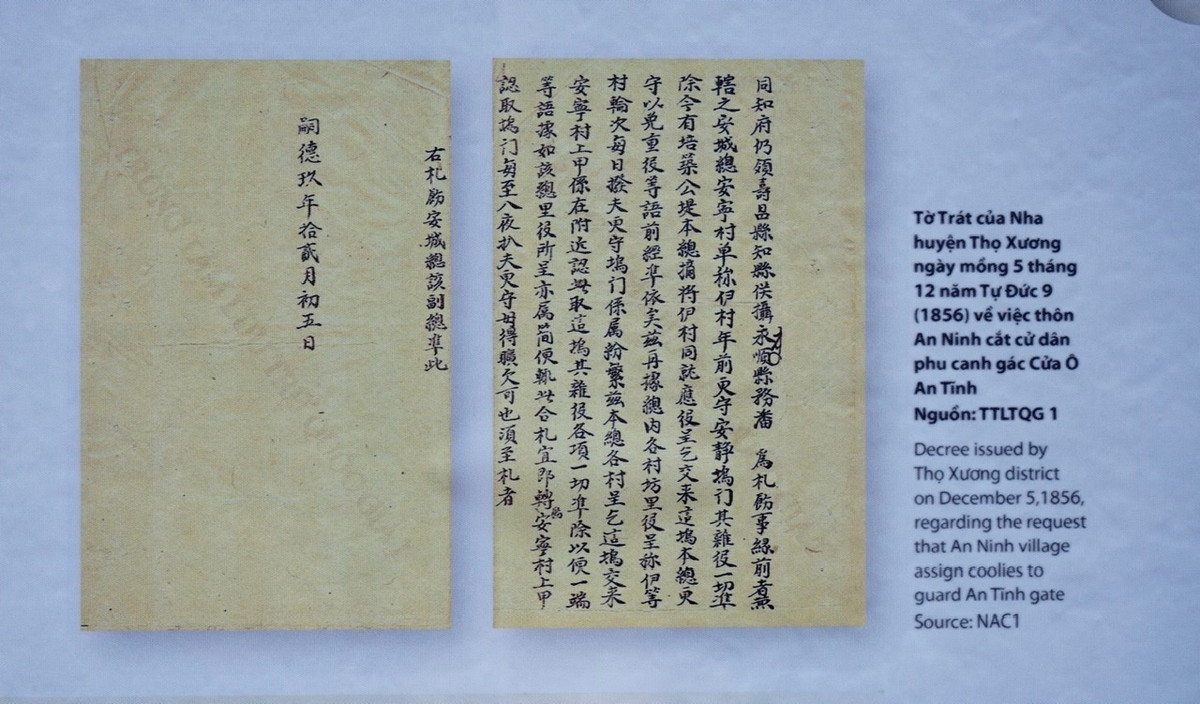 同知府仍領壽昌縣知縣供攝永順縣務潘 爲札飭事緣前者京
轄之安城總安寧村单称伊村年前更守安靜塢门其雜役一切準
除今有培築公堤本總摘將伊村同就應役呈乞交来這塢本總更
守以免重役等語前經準依矣茲再據總内各村坊里役呈称伊等
村輪次每日撥夫更守塢门係属紛繁茲本總各村呈乞這塢交来
安寧村上甲係在附近認取這塢其雜役各項一切準除以便一端
等語據如該總里役所呈亦属简便執此合札宜即轉飭安寧村上甲
認取塢门每至八夜扒夫更守毋得曠欠可也須至札者
右札飭安城總該副總準此
嗣德玖年拾貳月初五日
Tờ Trát của Nha
huyện Thọ Xương
ngày mồng 5 tháng
12 năm Tự Đức 9
(1856) về việc thôn
An Ninh cắt cử dân
phu canh gác Cửa Ô
An Tĩnh
Nguồn: TTLTQG 1
Decree issued by
Thọ Xương district
on December 5,1856,
regarding the request
that An Ninh village
assign coolies to
guard An Tinh gate
Source: NAC1